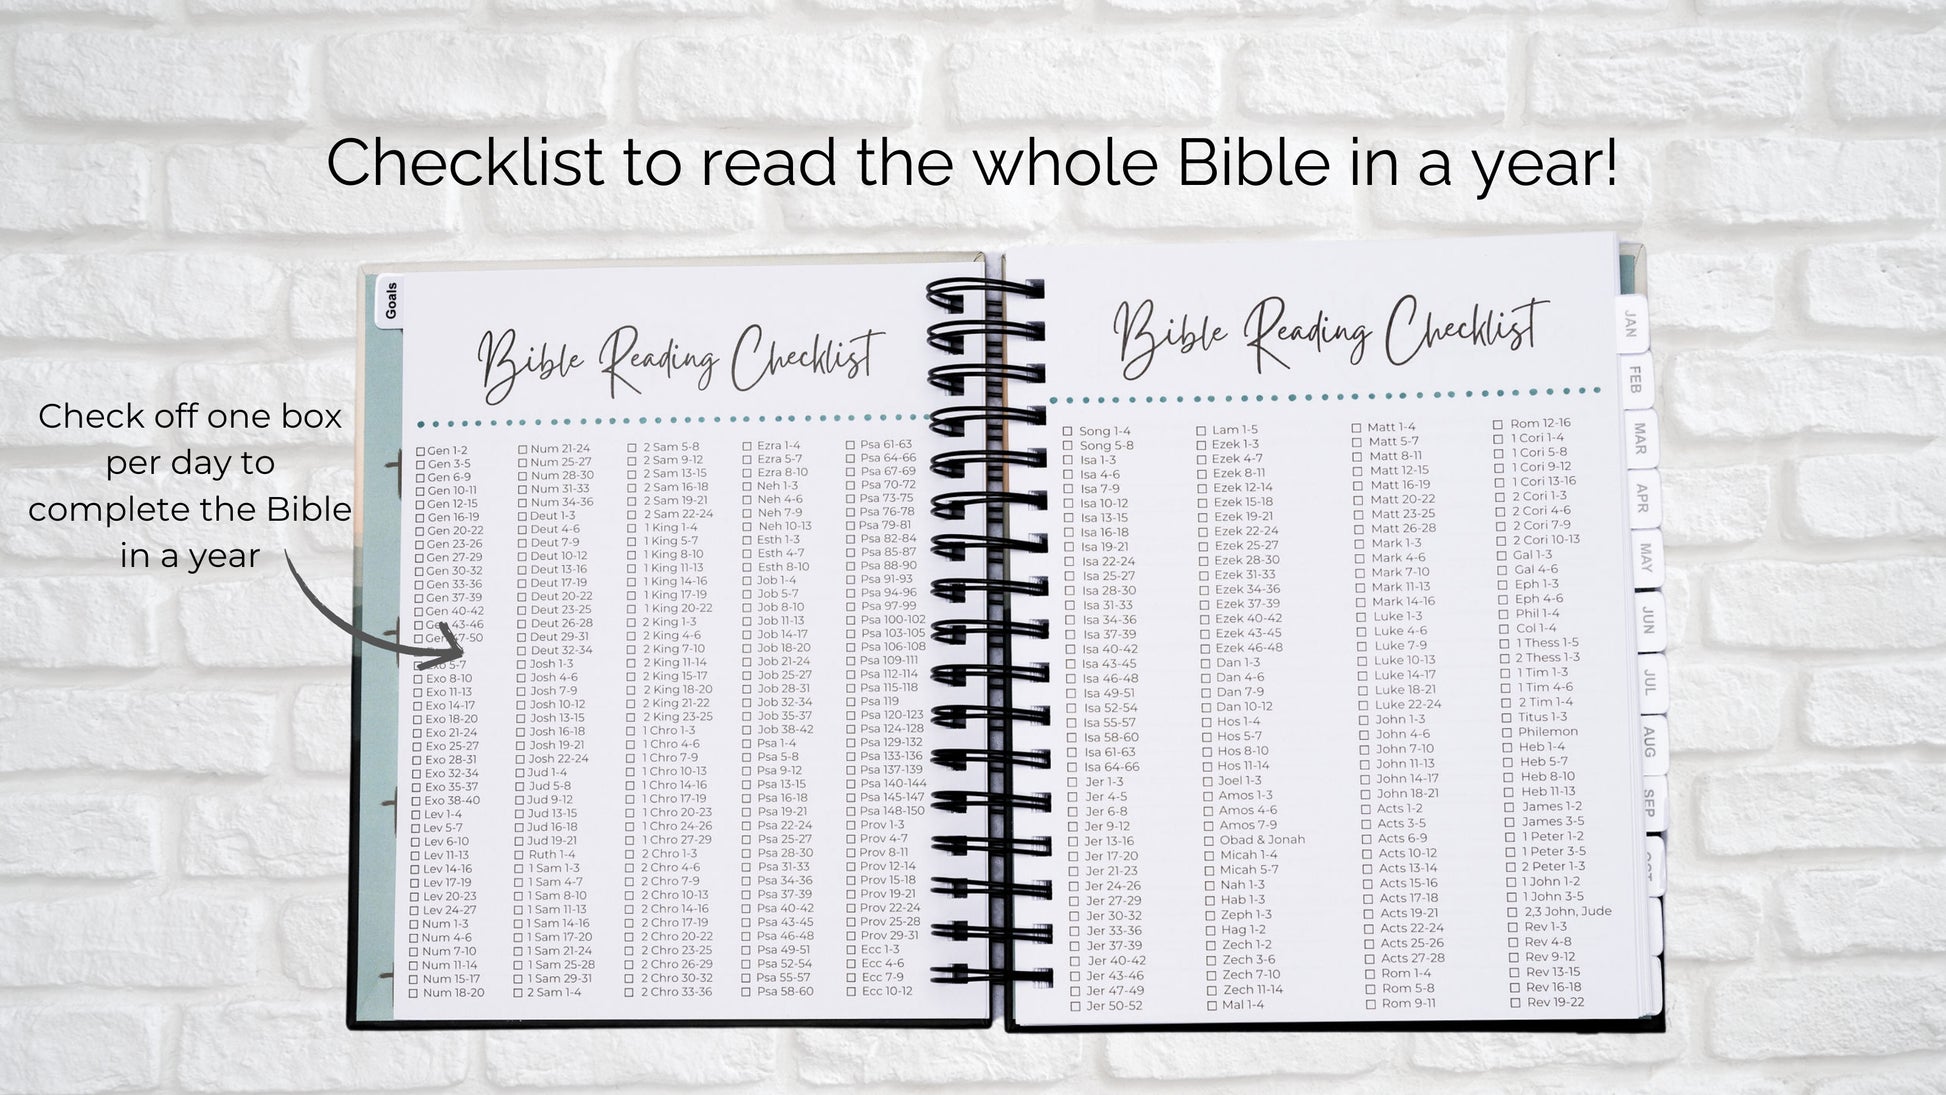 Checklist to read the whole Bible in a year!
Check off one box
per day to
complete the Bible
in a year
Goals
Bible Reading Checklist
Gen 1-2
Gen 3-5
Gen 6-9
Gen 10-11
Gen 12-15
Gen 16-19
Gen 20-22
Gen 23-26
Gen 27-29
Gen 30-32
Gen 33-36
Gen 37-39
Gen 40-42
Gen 43-46
Gen 47-50
Exo 5-7
Exo 8-10
Exo 11-13
Exo 14-17
Exo 18-20
Exo 21-24
Exo 25-27
Exo 28-31
Exo 32-34
Exo 35-37
Exo 38-40
Lev 1-4
Lev 5-7
Lev 6-10
Lev 11-13
Lev 14-16
Lev 17-19
Lev 20-23
Lev 24-27
Num 1-3
Num 4-6
Num 7-10
Num 11-14
Num 15-17
Num 18-20
Num 21-24
Num 25-27
Num 28-30
Num 31-33
Num 34-36
Deut 1-3
Deut 4-6
Deut 7-9
Deut 10-12
Deut 13-16
Deut 17-19
Deut 20-22
Deut 23-25
Deut 26-28
Deut 29-31
Deut 32-34
Josh 1-3
Josh 4-6
Josh 7-9
Josh 10-12
Josh 13-15
Josh 16-18
Josh 19-21
Josh 22-24
Jud 1-4
Jud 5-8
Jud 9-12
Jud 13-15
Jud 16-18
Jud 19-21
Ruth 1-4
1 Sam 1-3
1 Sam 4-7
1 Sam 8-10
1 Sam 11-13
1 Sam 14-16
1 Sam 17-20
1 Sam 21-24
1 Sam 25-28
1 Sam 29-31
2 Sam 1-4
2 Sam 5-8
2 Sam 9-12
2 Sam 13-15
2 Sam 16-18
2 Sam 19-21
2 Sam 22-24
1 King 1-4
1 King 5-7
1 King 8-10
1 King 11-13
1 King 14-16
1 King 17-19
1 King 20-22
2 King 1-3
2 King 4-6
2 King 7-10
2 King 11-14
2 King 15-17
2 King 18-20
2 King 21-22
2 King 23-25
1 Chro 1-3
1 Chro 4-6
1 Chro 7-9
1 Chro 10-13
1 Chro 14-16
1 Chro 17-19
1 Chro 20-23
1 Chro 24-26
1 Chro 27-29
2 Chro 1-3
2 Chro 4-6
2 Chro 7-9
2 Chro 10-13
2 Chro 14-16
2 Chro 17-19
2 Chro 20-22
2 Chro 23-25
2 Chro 26-29
2 Chro 30-32
2 Chro 33-36
Ezra 1-4
Ezra 5-7
Ezra 8-10
Neh 1-3
Neh 4-6
Neh 7-9
Neh 10-13
Esth 1-3
Esth 4-7
Esth 8-10
Job 1-4
Job 5-7
Job 8-10
Job 11-13
Job 14-17
Job 18-20
Job 21-24
Job 25-27
Job 28-31
Job 32-34
Job 35-37
Job 38-42
Psa 1-4
Psa 5-8
Psa 9-12
Psa 13-15
Psa 16-18
Psa 19-21
Psa 22-24
Psa 25-27
Psa 28-30
Psa 31-33
Psa 34-36
Psa 37-39
Psa 40-42
Psa 43-45
Psa 46-48
Psa 49-51
Psa 52-54
Psa 55-57
Psa 58-60
Psa 61-63
Psa 64-66
Psa 67-69
Psa 70-72
Psa 73-75
Psa 76-78
Psa 79-81
Psa 82-84
Psa 85-87
Psa 88-90
Psa 91-93
Psa 94-96
Psa 97-99
Psa 100-102
Psa 103-105
Psa 106-108
Psa 109-111
Psa 112-114
Psa 115-118
Psa 119
Psa 120-123
Psa 124-128
Psa 129-132
Psa 133-136
Psa 137-139
Psa 140-144
Psa 145-147
Psa 148-150
Prov 1-3
Prov 4-7
Prov 8-11
Prov 12-14
Prov 15-18
Prov 19-21
Prov 22-24
Prov 25-28
Prov 29-31
Ecc 1-3
Ecc 4-6
Ecc 7-9
Ecc 10-12
Bible Reading Checklist
Song 1-4
Song 5-8
Isa 1-3
Isa 4-6
Isa 7-9
Isa 10-12
Isa 13-15
Isa 16-18
Isa 19-21
Isa 22-24
Isa 25-27
Isa 28-30
Isa 31-33
Isa 34-36
Isa 37-39
Isa 40-42
Isa 43-45
Isa 46-48
Isa 49-51
Isa 52-54
Isa 55-57
Isa 58-60
Isa 61-63
Isa 64-66
Jer 1-3
Jer 4-5
Jer 6-8
Jer 9-12
Jer 13-16
Jer 17-20
Jer 21-23
Jer 24-26
Jer 27-29
Jer 30-32
Jer 33-36
Jer 37-39
Jer 40-42
Jer 43-46
Jer 47-49
Jer 50-52
Lam 1-5
Ezek 1-3
Ezek 4-7
Ezek 8-11
Ezek 12-14
Ezek 15-18
Ezek 19-21
Ezek 22-24
Ezek 25-27
Ezek 28-30
Ezek 31-33
Ezek 34-36
Ezek 37-39
Ezek 40-42
Ezek 43-45
Ezek 46-48
Dan 1-3
Dan 4-6
Dan 7-9
Dan 10-12
Hos 1-4
Hos 5-7
Hos 8-10
Hos 11-14
Joel 1-3
Amos 1-3
Amos 4-6
Amos 7-9
Obad & Jonah
Micah 1-4
Micah 5-7
Nah 1-3
Hab 1-3
Zeph 1-3
Hag 1-2
Zech 1-2
Zech 3-6
Zech 7-10
Zech 11-14
Mal 1-4
Matt 1-4
Matt 5-7
Matt 8-11
Matt 12-15
Matt 16-19
Matt 20-22
Matt 23-25
Matt 26-28
Mark 1-3
Mark 4-6
Mark 7-10
Mark 11-13
Mark 14-16
Luke 1-3
Luke 4-6
Luke 7-9
Luke 10-13
Luke 14-17
Luke 18-21
Luke 22-24
John 1-3
John 4-6
John 7-10
John 11-13
John 14-17
John 18-21
Acts 1-2
Acts 3-5
Acts 6-9
Acts 10-12
Acts 13-14
Acts 15-16
Acts 17-18
Acts 19-21
Acts 22-24
Acts 25-26
Acts 27-28
Rom 1-4
Rom 5-8
Rom 9-11
Rom 12-16
1 Cori 1-4
1 Cori 5-8
1 Cori 9-12
1 Cori 13-16
2 Cori 1-3
2 Cori 4-6
2 Cori 7-9
2 Cori 10-13
Gal 1-3
Gal 4-6
Eph 1-3
Eph 4-6
Phil 1-4
Col 1-4
1 Thess 1-5
2 Thess 1-3
1 Tim 1-3
1 Tim 4-6
2 Tim 1-4
Titus 1-3
Philemon
Heb 1-4
Heb 5-7
Heb 8-10
Heb 11-13
James 1-2
James 3-5
1 Peter 1-2
1 Peter 3-5
2 Peter 1-3
1 John 1-2
1 John 3-5
2,3 John, Jude
Rev 1-3
Rev 4-8
Rev 9-12
Rev 13-15
Rev 16-18
Rev 19-22
JAN
FEB
MAR
APR
MAY
JUN
JUL
AUG
SEP
OCT